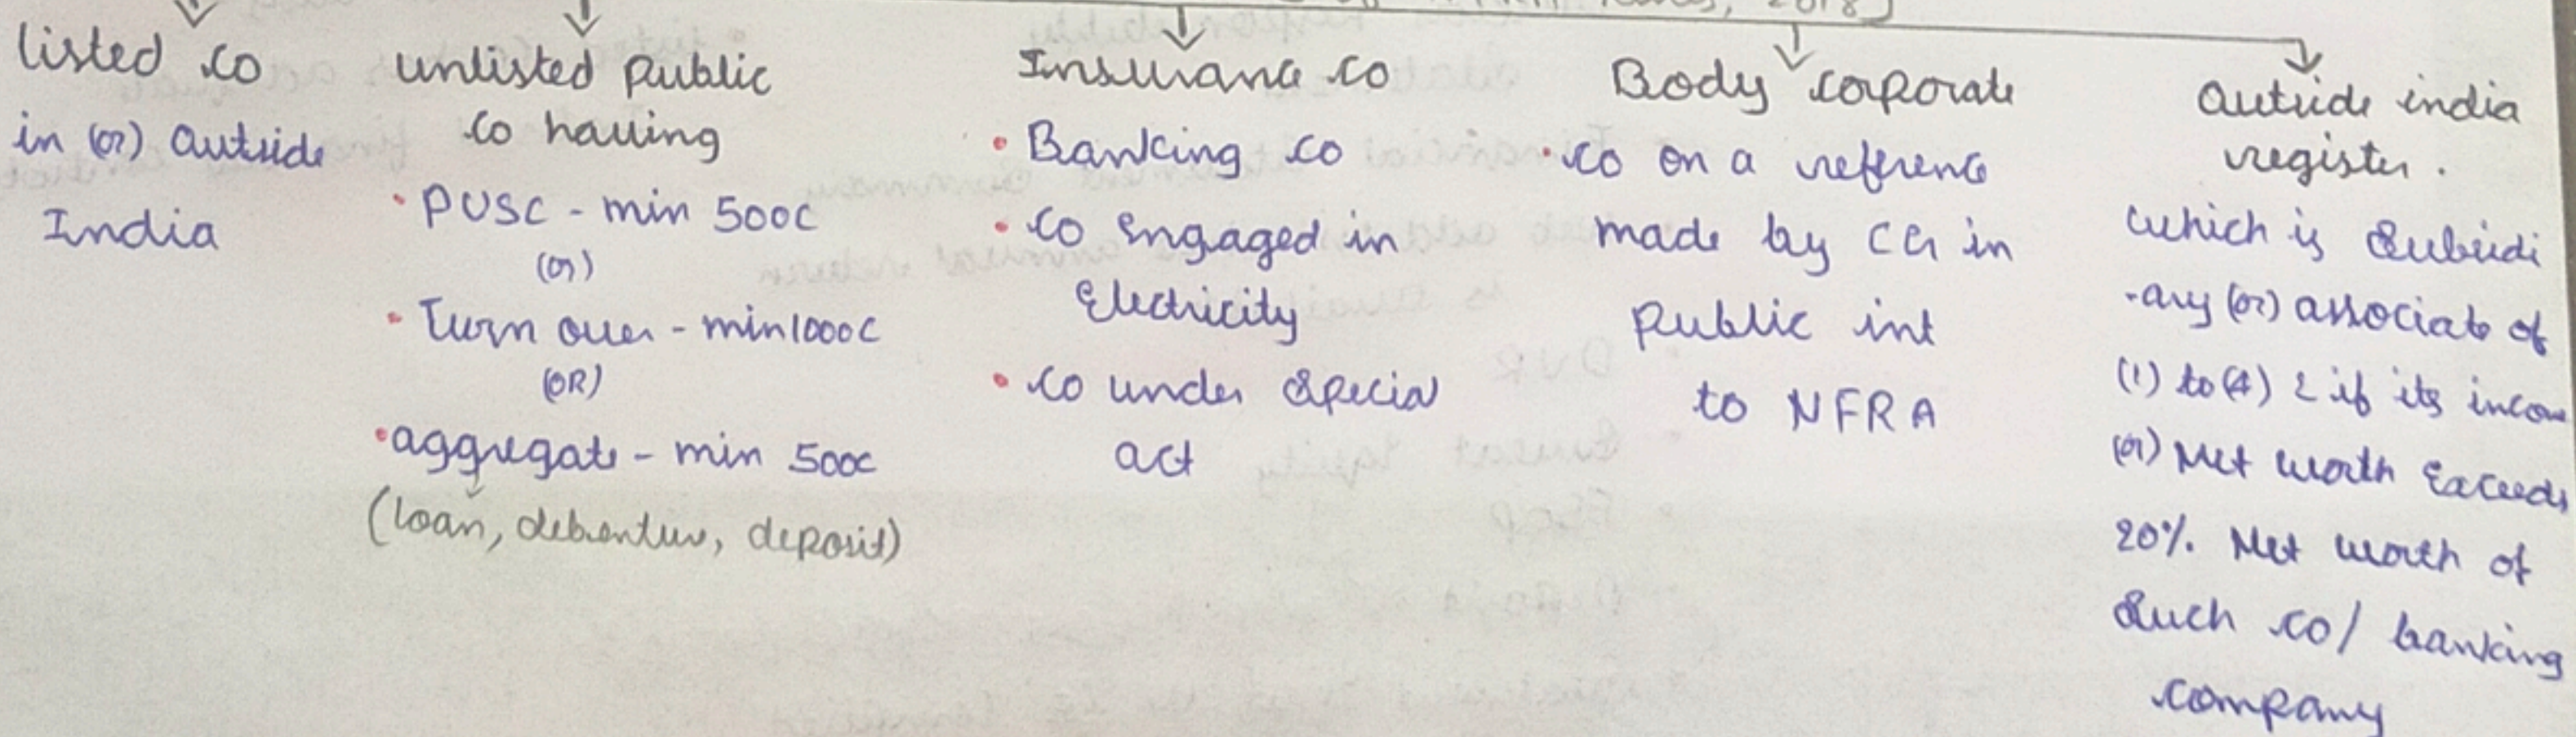 Rules, 2018]
listed co
in (or) outside
India
unlisted public
co having
• PUSC - min 500C
(or)
• Turn over - min 1000C
(OR)
• aggregate - min 500C
(loan, debenture, deposit)
Insurance co
• Banking co
• co Engaged in
Electricity
• co under special
act
Body corporate
• co on a reference
made by CG in
public int
to NFRA
outside india
register.
which is subsidi
-ary (or) associate of
(1) to (4) & if its income
(or) Net worth Exceeds
20%. Net worth of
such co/ banking
company